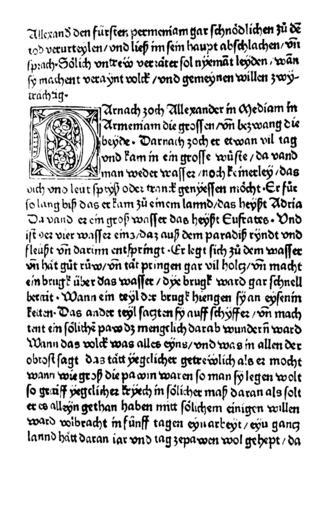 Allexand den fürsten permeniam gar schnödlichen zů dē
tod verurteylen/und ließ im sein haupt abschlachen/vñ
sprach. Sölich vntrew verräter sol nyemāt leyden/wañ
sy machent veraynt volck/und gemeynen willen zwy-
trächtig.
DArnach zoch Allexander in Mediam in
Armeniam die grossen/vñ bezwang die
beyde. Darnach zoch er etwan vil tag
und kam in ein grosse wüste/da vand
man weder wasser/noch keinerley/das
vich vnd leut speyß oder tranck genyessen möcht. Er für
so lang biß das er kam zů einem lannd/das heyßt Adria
Da vand er ein groß wasser das heyßt Eufrates. Und
ist der vier wasser einß/daz auß dem paradiß ryndt vnd
fleüßt vñ darinn entspringt. Er legt sich zů dem wasser
vñ hat gůt růw/vñ tät pringen gar vil holcz/vñ macht
ein brugk über das wasser/dye brugk ward gar schnell
berait. Wann ein teyl der brugk hiengen sy an eysenin
keiten. Das ander teyl saczten sy auff schyffer/vñ mach
tent ein sölichē paw dz menglich darab wundern ward
Wann das volck was alles eyns/und was in allen der
obrost sagt das tätt yegelicher getrewlich als er mocht
wann wie groß die pawin waren so man sy legen wolt
so greiff yegelicher keyech in sölicher maß daran als solt
er es alleyn gethan haben mitt sölichem einigen willen
ward volbracht in fünff tagen eyn arbeyt/eyn gancz
lannd hätt daran iar und tag zepawen wol gehept/da